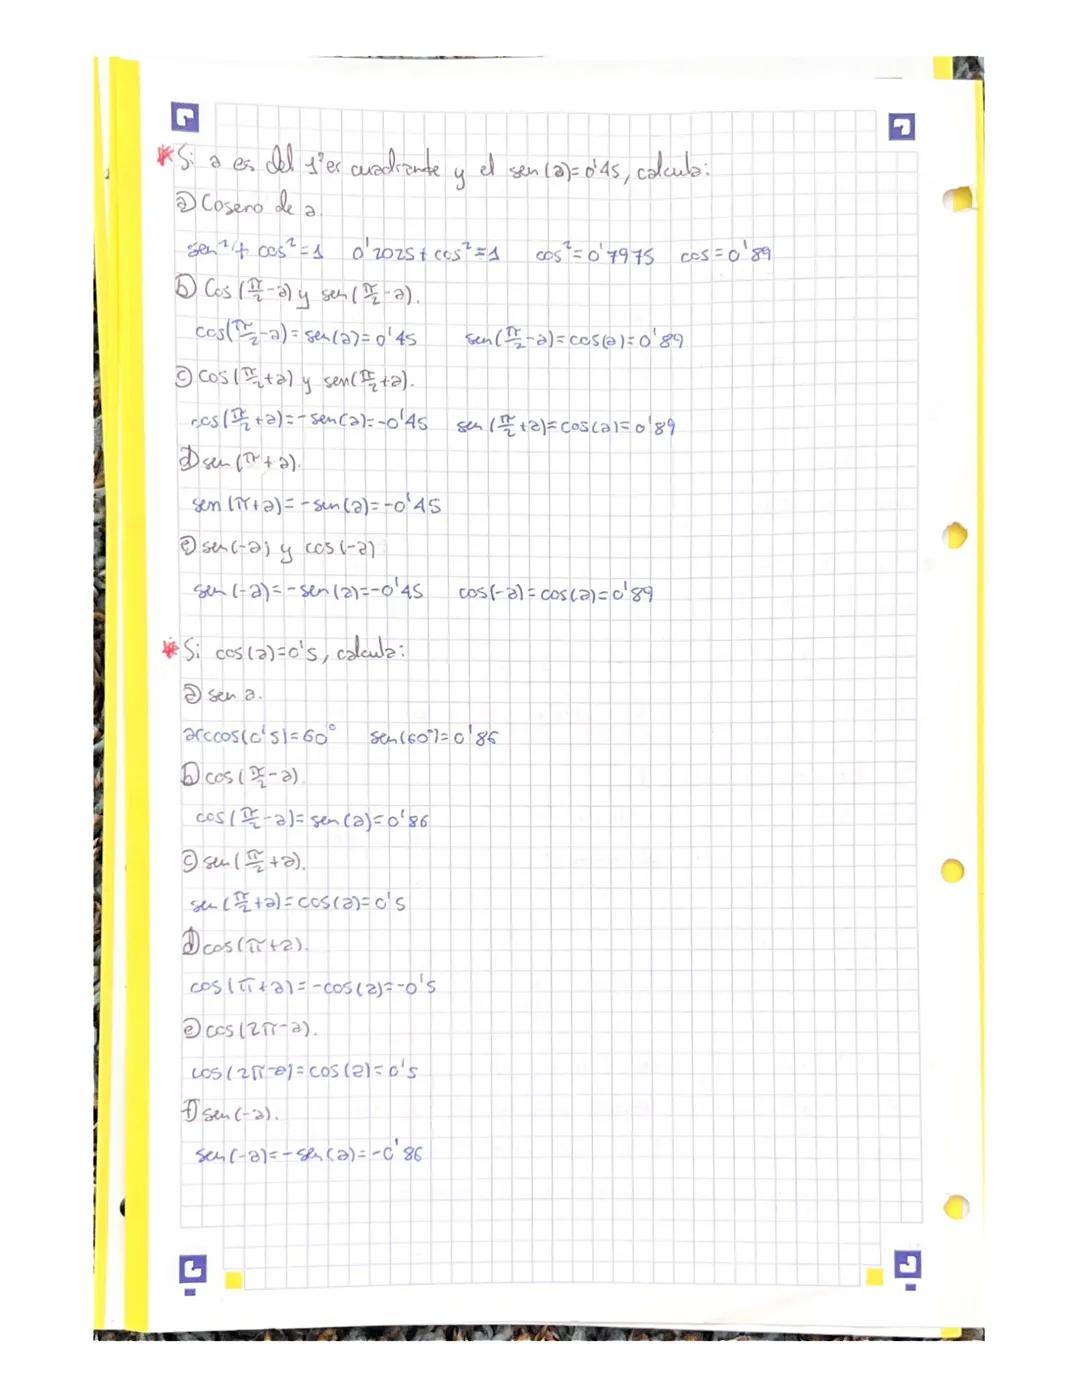 * Si a es del 1er cuadrante y el sen(a)=0'45, calcula:
a) Coseno de a.
sen²+cos²=1 0'2025+cos²=1 cos²=0'7975 cos=0'89
b) Cos(π/2-a) y sen(π/2-a).
cos(π/2-a)=sen(a)=0'45 sen(π/2-a)=cos(a)=0'89
c) cos(π/2+a) y sen(π/2+a).
cos(π/2+a)=-sen(a)=-0'45 sen(π/2+a)=cos(a)=0'89
d) sen(π+a).
sen(π+a)=-sen(a)=-0'45
e) sen(-a) y cos(-a)
sen(-a)=-sen(a)=-0'45 cos(-a)=cos(a)=0'89
* Si cos(a)=0'5, calcula:
a) sen a.
arccos(0'5)=60° sen(60°)=0'86
b) cos(π/2-a).
cos(π/2-a)=sen(a)=0'86
c) sen(π/2+a).
sen(π/2+a)=cos(a)=0'5
d) cos(π+a).
cos(π+a)=-cos(a)=-0'5
e) cos(2π-a).
cos(2π-a)=cos(a)=0'5
f) sen(-a).
sen(-a)=-sen(a)=-0'86